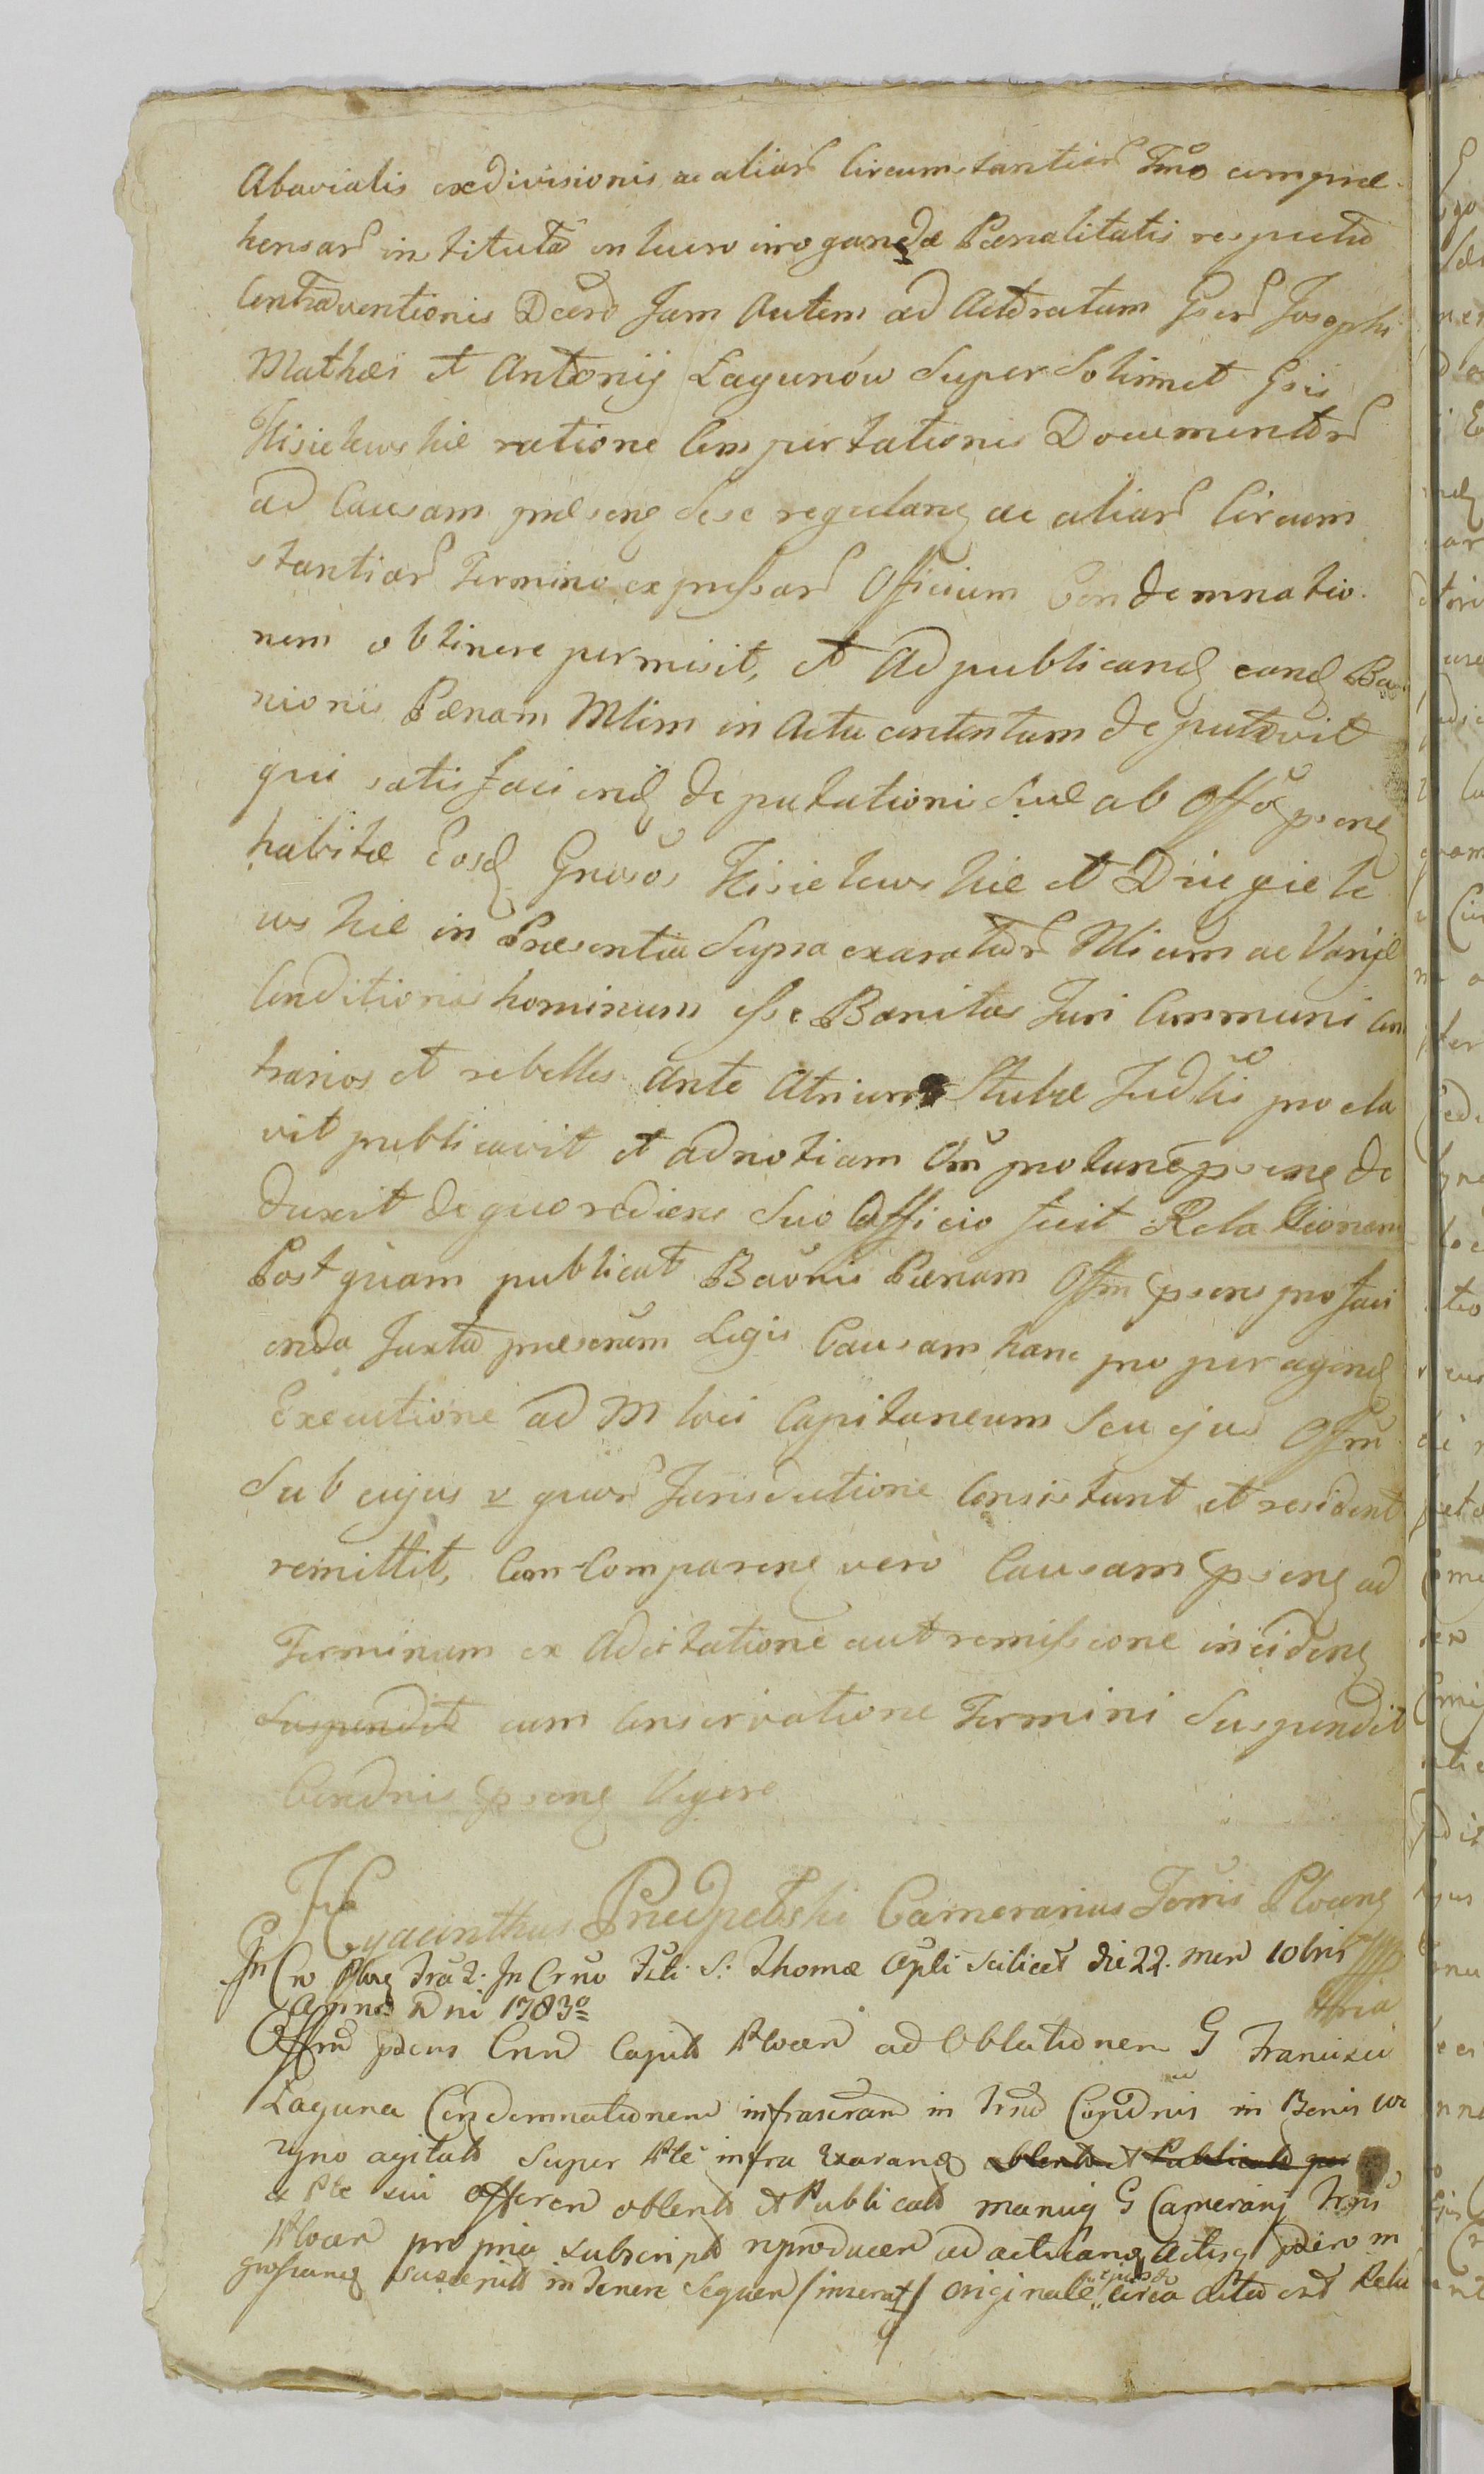 Abavialis exdivisionis ac aliar Circumstantiar Tmo compræ-
hensar institutâ in lucro irrogandæ Pœnalitatis respectu
Contraventionis Decro Jam Autem ad Actoratum Gser Josephi
Mathæi et Antonij Łagunów Super Solimet Gsis
Kisielewskie ratione Comportationis Documentor
ad Causam præseng sese regulang ac aliar Circum
stantiar Termino expressar Officium Condemnatio-
nem obtinere permisit, et Ad publicandg eandg Ban
nionis Pœnam Mlim in Actu contentum deputavit
qui satisfaciendg deputationi Suæ ab Offo pseng
habitæ Eosdg Gnusos Kisielewskie et Dziegiele
wskie in Præsentia Supra exarator Mlium ac Varijæ
Conditionis hominum esse Banitos Juri Communi Con
trarios et rebelles Ante Atrium Stubæ Judlis procla
vit publicavit et ad notiam Om protunc pseng de
duxit de quo rediens Suo Officio fecit Relationem
Post quam publicat Baonis Pœnam Offm psens pro faci
enda Juxta præscrum Legis Causam hanc pro peragendg
Executione ad M loci Capitaneum Seu ejus Offm
Sub cujus v quor Jurisdictione Consistunt et resident
remittit, Com-Compareng vero Causam pseng ad
Terminum ex Adcitatione aut remissione incideng
Suspendit cum Conservatione Termini Suspendit
Condnis pseng Vigore
Hyacinthus Przedpełski Camerarius Terris Ploceng
In Cro Plog Fra 2. In Crno Fsti S: Thomæ Apli Scilicet die 22. men 10bris
Anno Dni 1783o
Offm pdcus Cnn Capit Plocen ad Oblationem G Francisci
Łaguna Condemnationem infrascram in Trno Condnis in Bonis
agitat Super Ple infra Exarang oblent et Publicat per
a Ple sui offeren oblent et Publicat manug G Camerarij Trris
Plocen propria subscript reproducen ad acticang Actisg pdcro in
grossang suscepit in tenore Sequen / inserat / originale circa Acta est Relic